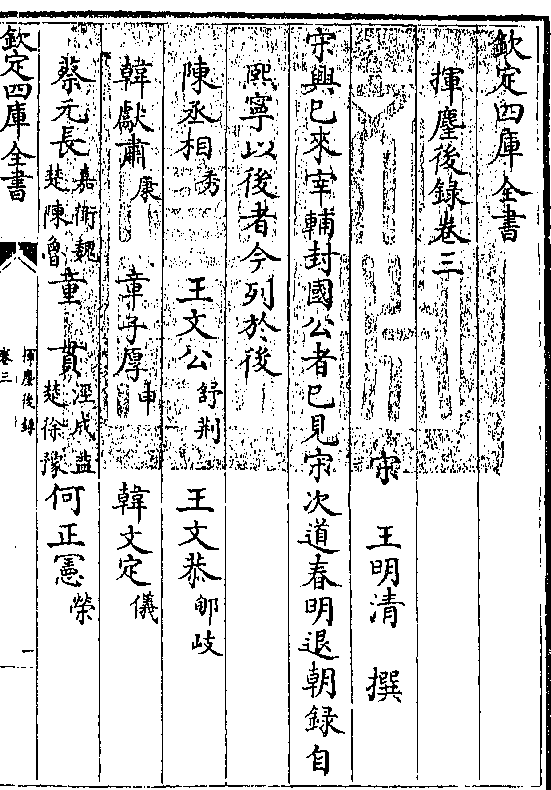 欽定四庫全書
揮麈後録卷三
宋 王明清 撰
宋興已來宰輔封國公者已見宋次道春明退朝録自
熙寧以後者今列於後
陳丞相秀 王文公舒荆 王文恭郇岐
韓獻肅康 章子厚申 韓文定儀
蔡元長嘉衛魏楚陳魯 童貫涇成益楚徐豫 何正憲榮
欽定四庫全書
揮麈後録
卷三
一